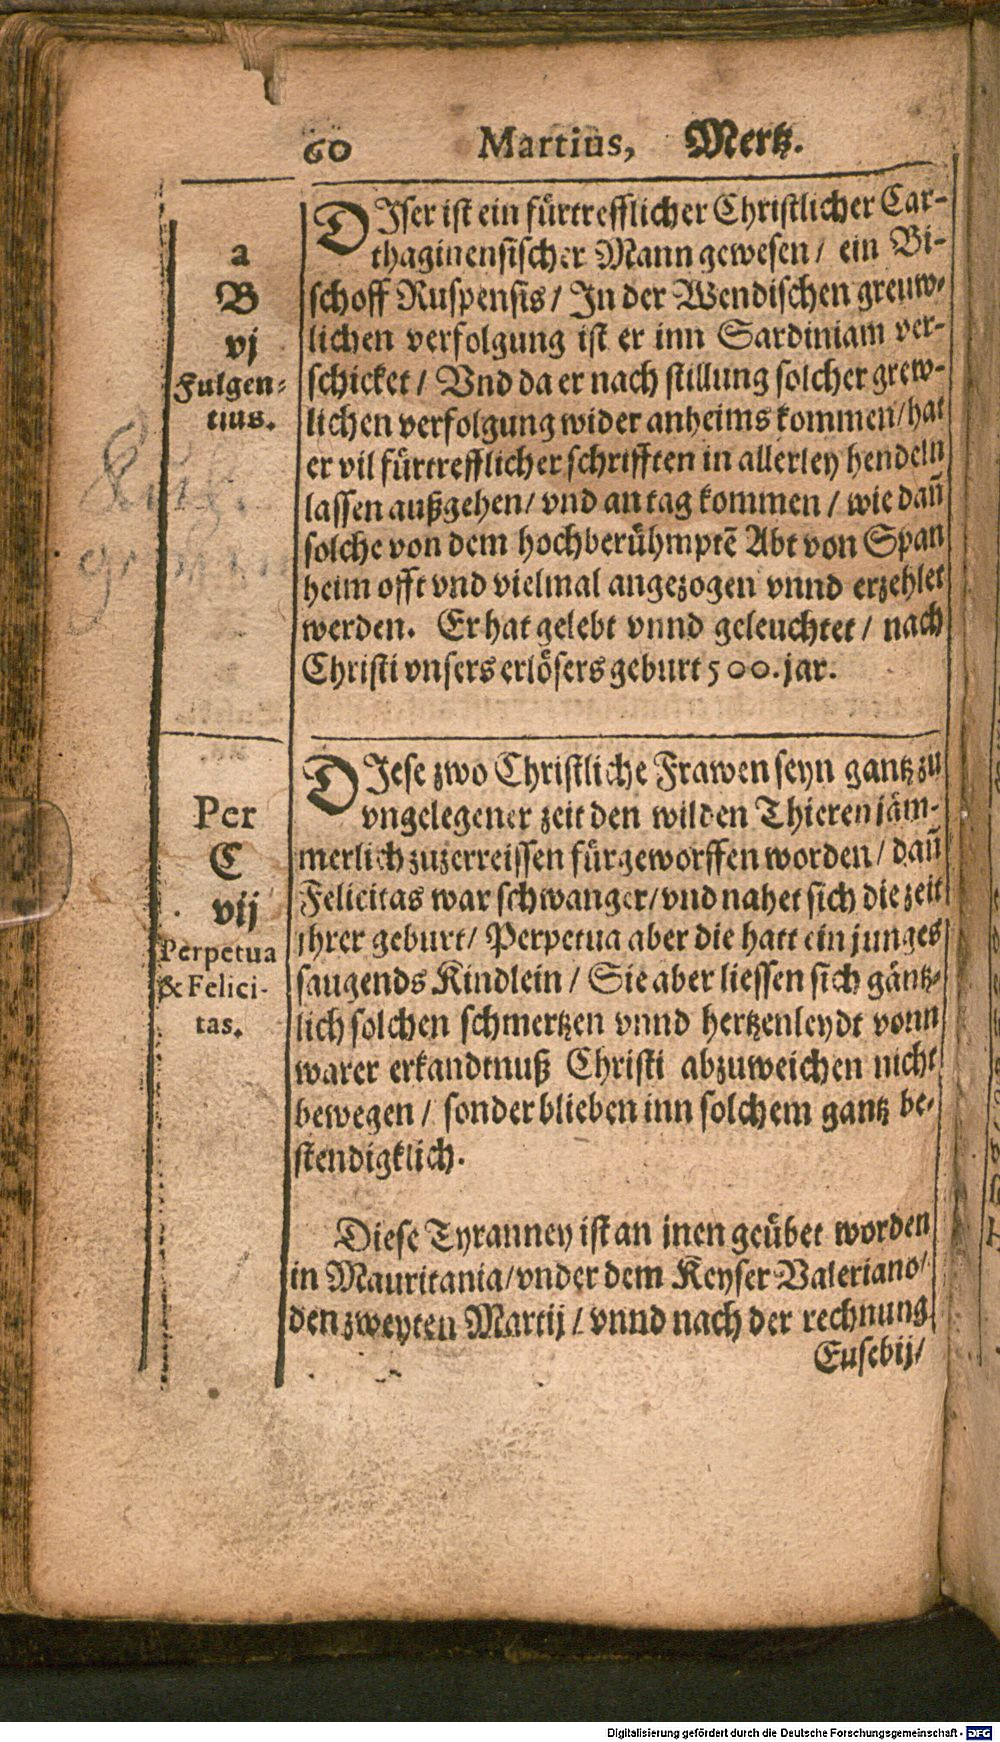 60 Martius, Mertz.
a
B
vj
Fulgen-
tius.
DIser ist ein fürtrefflicher Christlicher Car-
thaginensischer Mann gewesen/ ein Bi-
schoff Ruspensis/ In der Wendischen greuw-
lichen verfolgung ist er inn Sardiniam ver-
schicket/ Vnd da er nach stillung solcher grew-
lichen verfolgung wider anheims kommen/ hat
er vil fürtrefflicher schrifften in allerley hendeln
lassen außgehen/ vnd an tag kommen/ wie dañ
solche von dem hochberühmptē Abt von Span
heim offt vnd vielmal angezogen vnnd erzehlet
werden. Er hat gelebt vnnd geleuchtet/ nach
Christi vnsers erlösers geburt 500. jar.
Per
C
vij
Perpetua
& Felici-
tas.
DIese zwo Christliche Frawen seyn gantz zu
vngelegener zeit den wilden Thieren jäm-
merlich zuzerreissen fürgeworffen worden/ dañ
Felicitas war schwanger/ vnd nahet sich die zeit
ihrer geburt/ Perpetua aber die hatt ein junges
saugends Kindlein/ Sie aber liessen sich gäntz-
lich solchen schmertzen vnnd hertzenleydt vonn
warer erkandtnuß Christi abzuweichen nicht
bewegen/ sonder blieben inn solchem gantz be-
stendigklich.
Diese Tyranney ist an jnen geübet worden
in Mauritania/ vnder dem Keyser Valeriano/
den zweyten Martij/ vnnd nach der rechnung
Eusebij/
Digitalisierung gefördert durch die Deutsche Forschungsgemeinschaft - DFG